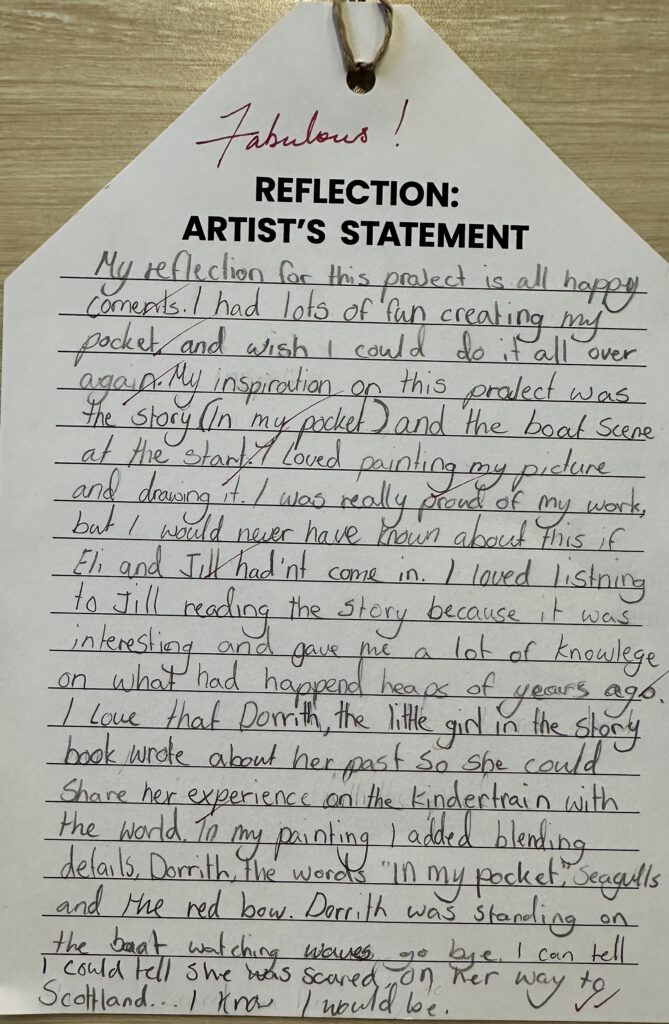 Fabulous!
REFLECTION:
ARTIST'S STATEMENT
My reflection for this project is all happy
coments. I had lots of fun creating my
pocket, and wish I could do it all over
again. My inspiration on this project was
the story (In my pocket) and the boat scene
at the start. I loved painting my picture
and drawing it. I was really proud of my work,
but I would never have known about this if
Eli and Jill had'nt come in. I loved listning
to Jill reading the story because it was
interesting and gave me a lot of knowlege
on what had happend heaps of years ago.
I love that Dorrith, the little girl in the story
book wrote about her past so she could
share her experience on the kindertrain with
the world. In my painting I added blending
details, Dorrith, the words "In my pocket", Seagulls
and the red bow. Dorrith was standing on
the boat watching waves go bye. I can tell
I could tell she was scared on her way to
Scottland... I know I would be.